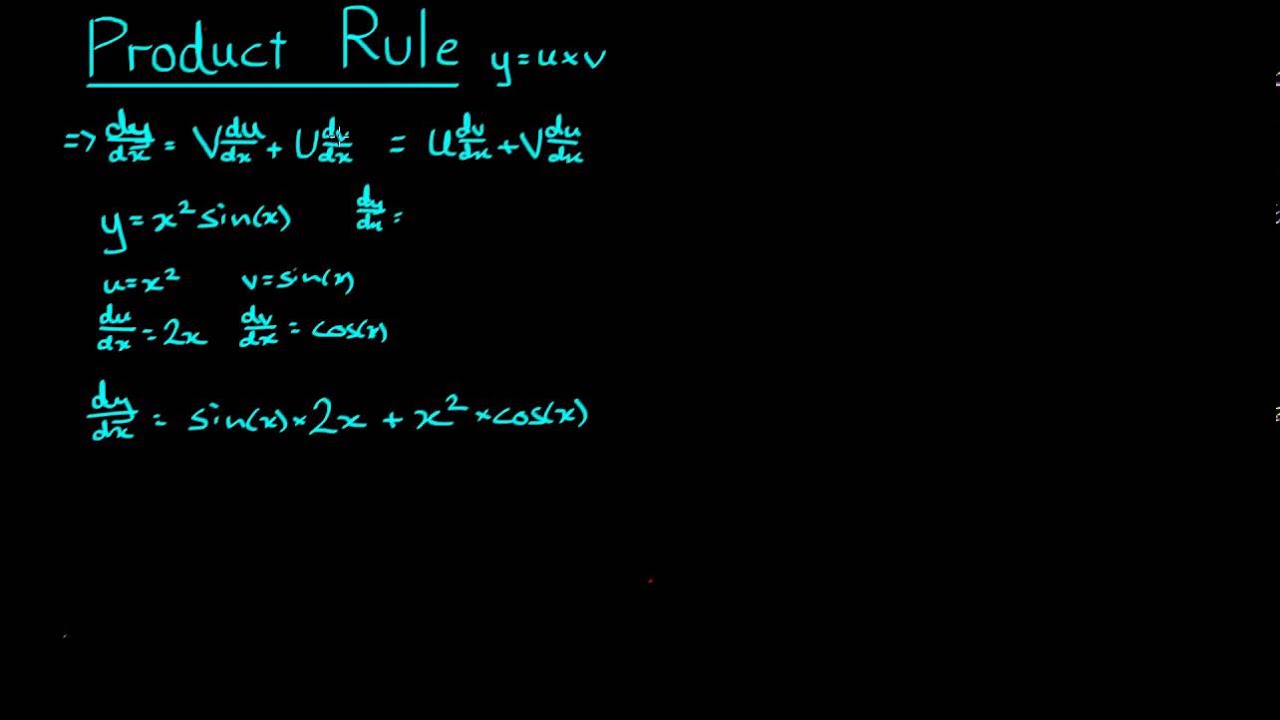 Product Rule y=u×v
=> dy/dx = V du/dx + U dv/dx = u dv/dx + V du/dx
y=x² sin(x) dy/dx =
u=x² v=sin(x)
du/dx = 2x dv/dx = cos(x)
dy/dx = sin(x)×2x + x²×cos(x)